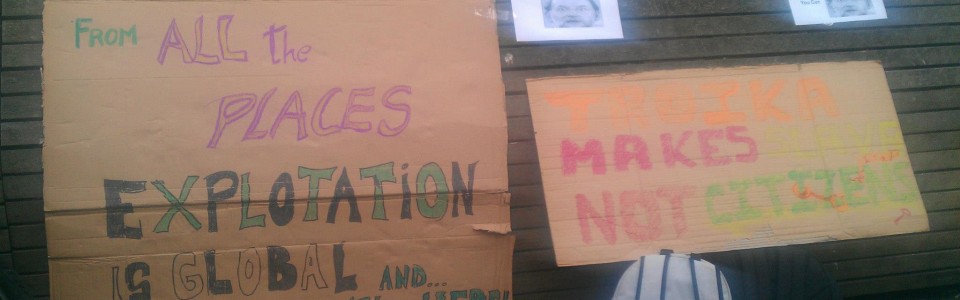 FROM ALL the
PLACES
EXPLOTATiON
IS GLOBAL AND...
TROIKA
MAKES SLAVE
NOT CITIZENS